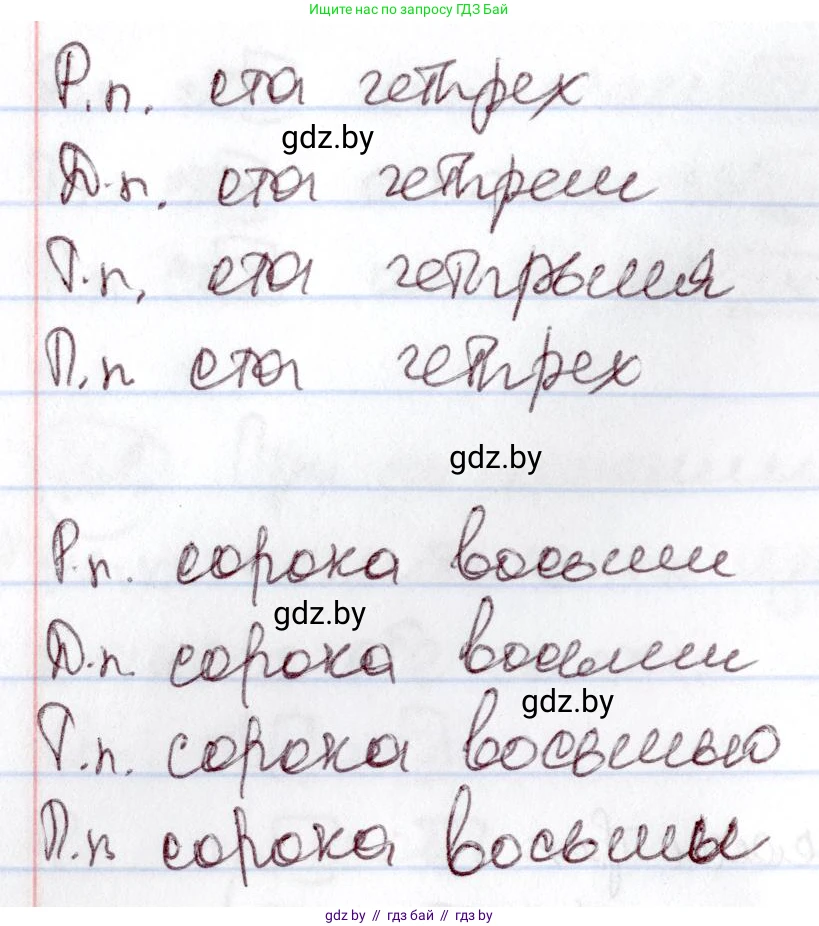 Ищите нас по запросу ГДЗ Бай
Р.п. ста четырех
gdz.by
Д.п. ста четырем
Т.п. ста четырьмя
П.п ста четырех
gdz.by
Р.п. сорока восьми
gdz.by
Д.п. сорока восьми
gdz.by
Т.п. сорока восьмью
П.п сорока восьмы
gdz.by // гдз бай // гдз by